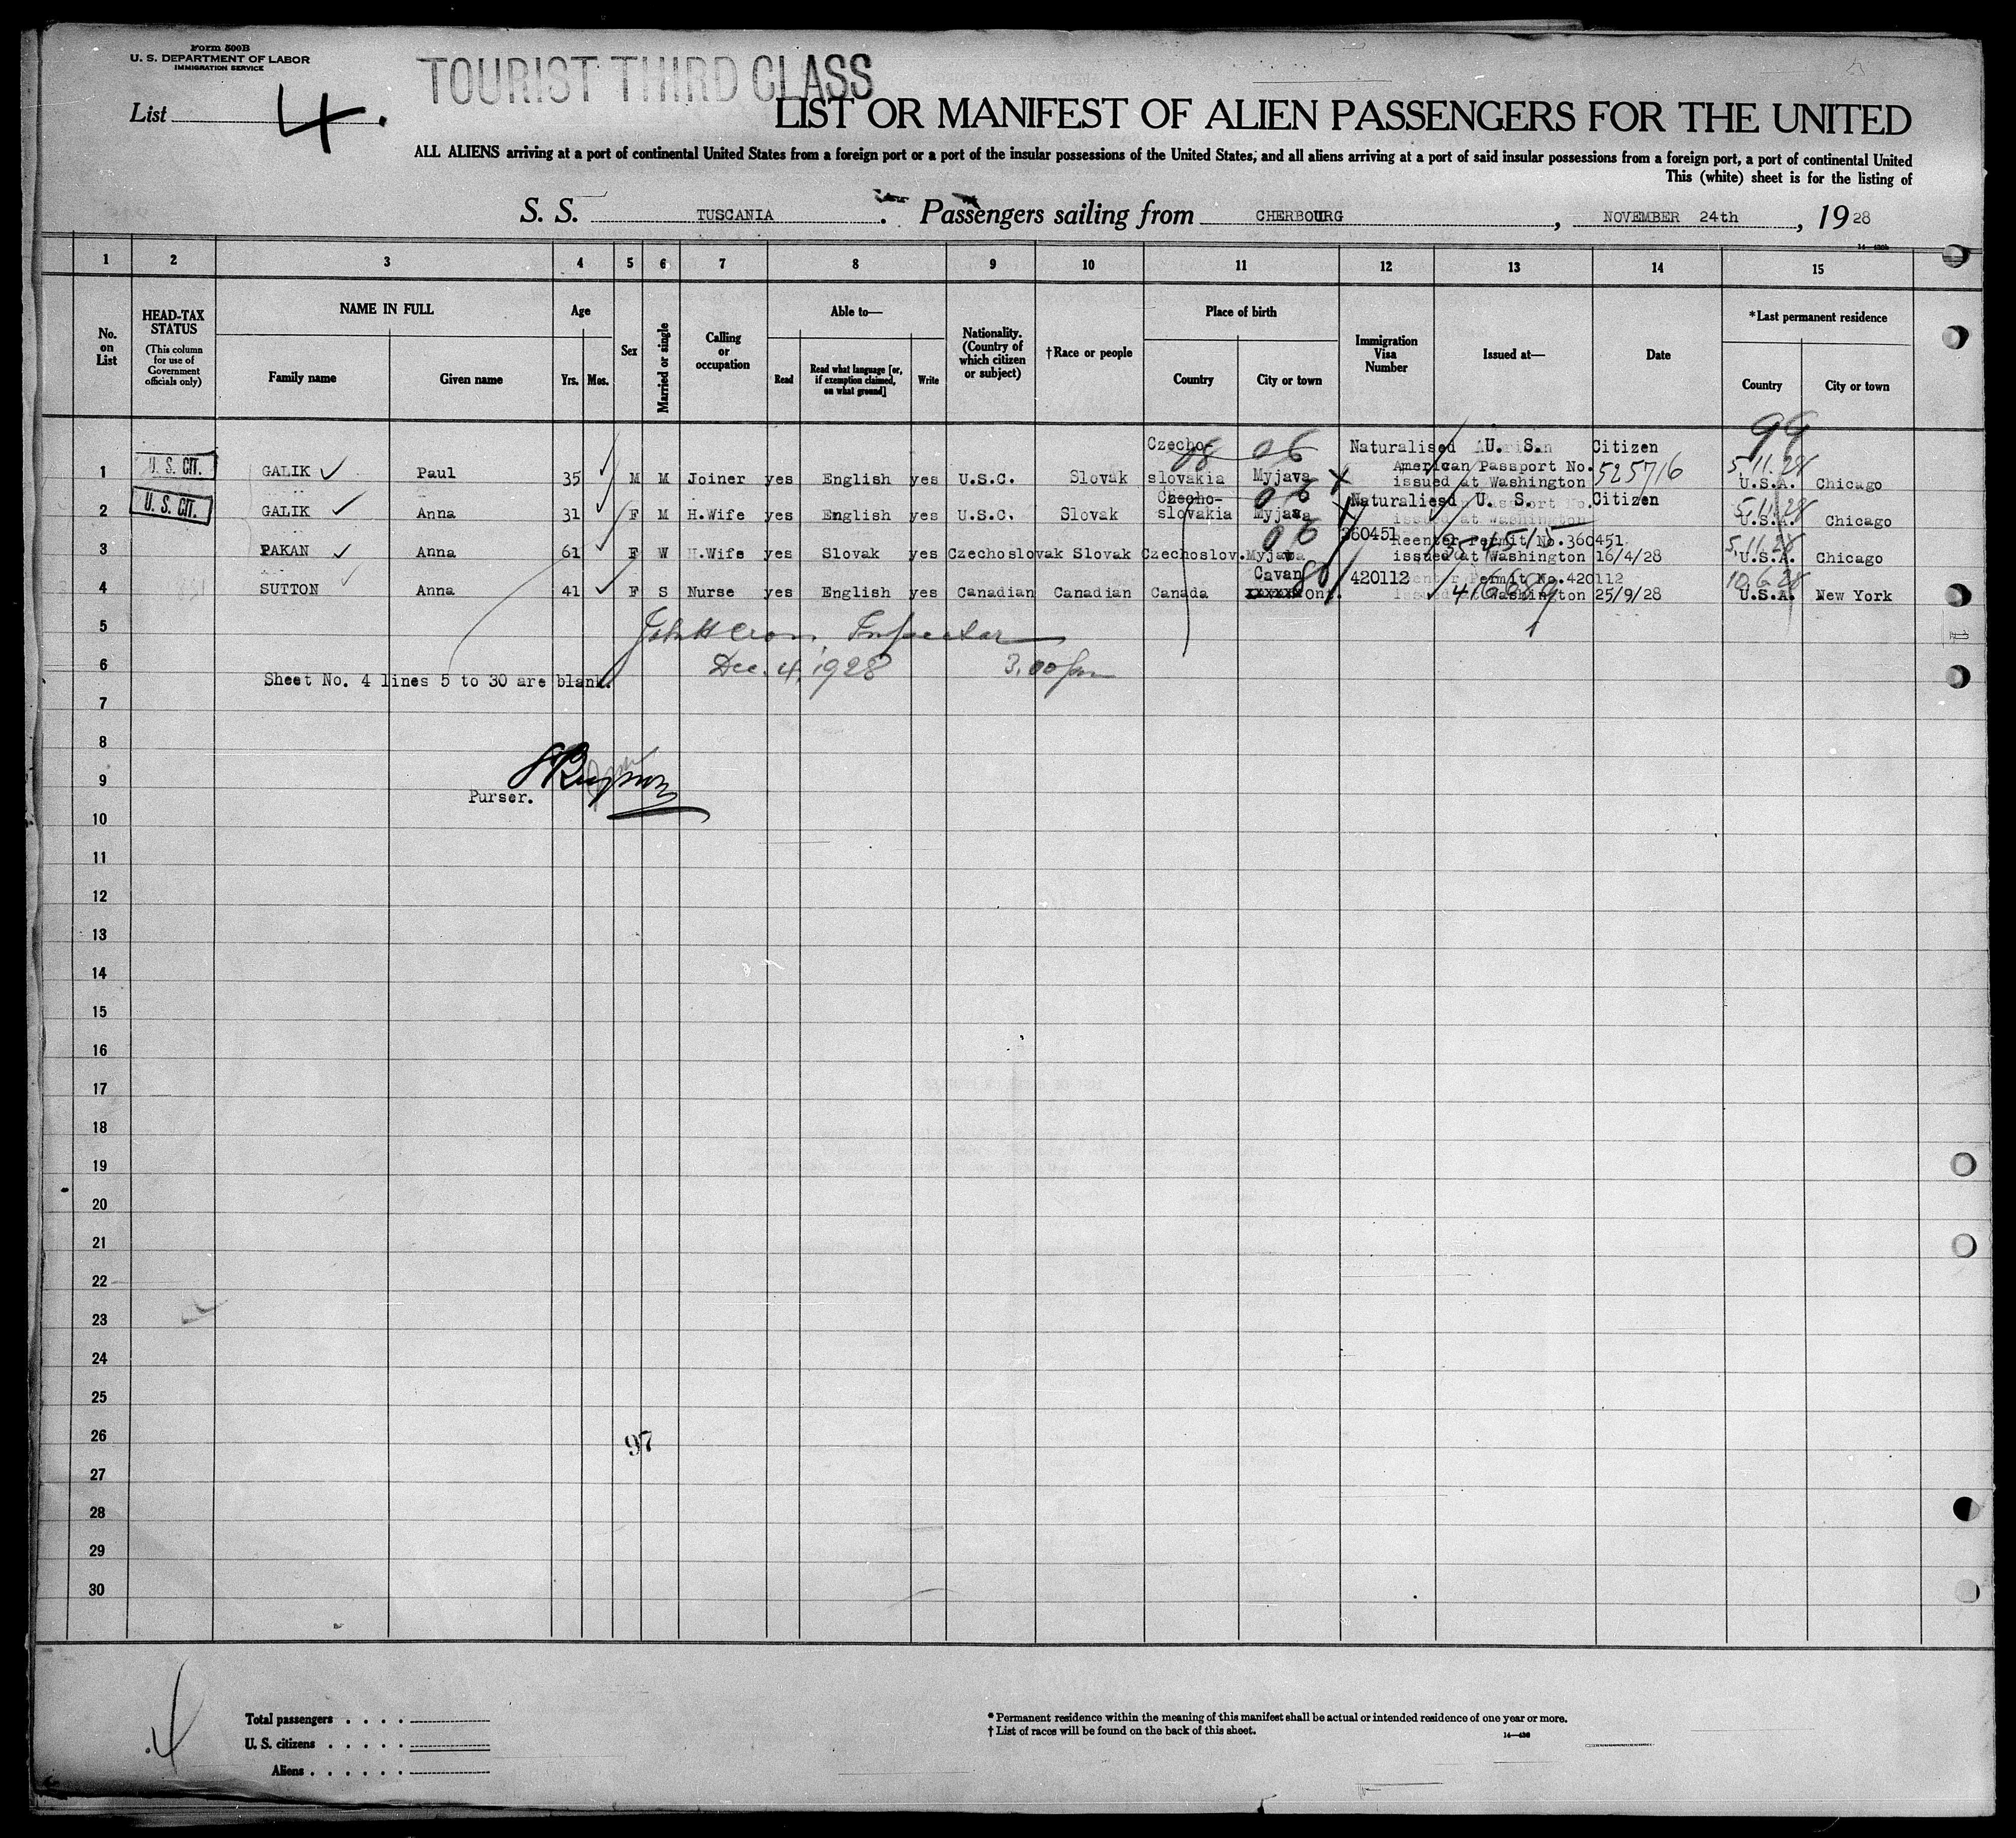 Form 500B
U. S. DEPARTMENT OF LABOR
IMMIGRATION SERVICE
TOURIST THIRD CLASS
List 4.
LIST OR MANIFEST OF ALIEN PASSENGERS FOR THE UNITED
ALL ALIENS arriving at a port of continental United States from a foreign port or a port of the insular possessions of the United States, and all aliens arriving at a port of said insular possessions from a foreign port, a port of continental United
This (white) sheet is for the listing of
S. S. TUSCANIA. Passengers sailing from CHERBOURG, NOVEMBER 24th, 1928
1 2 3 4 5 6 7 8 9 10 11 12 13 14 15
No. on List
HEAD-TAX STATUS
(This column for use of Government officials only)
NAME IN FULL
Family name Given name
Age
Yrs. Mos.
Sex
Married or single
Calling or occupation
Able to—
Read
Read what language [or, if exemption claimed, on what ground]
Write
Nationality. (Country of which citizen or subject)
†Race or people
Place of birth
Country City or town
Immigration Visa Number
Issued at—
Date
*Last permanent residence
Country City or town
99
Czecho- 08 06 Naturalised U. S. Citizen
American Passport No. 525716 5.11.28
1 U. S. CIT. GALIK Paul 35 M M Joiner yes English yes U.S.C. Slovak slovakia Myjava issued at Washington U.S.A. Chicago
Czecho- 06 Naturaliesd U. S. Citizen 5.11.28
2 U. S. CIT. GALIK Anna 31 F M H.Wife yes English yes U.S.C. Slovak slovakia Myjava U.S.A. Chicago
06 360451 Reenter Permit No.360451 5.11.28
3 PAKAN Anna 61 F W H.Wife yes Slovak yes Czechoslovak Slovak Czechoslov. Myjava issued at Washington 16/4/28 U.S.A. Chicago
Cavan 80 420112 Reenter Permit No.420112 10.6.28
4 SUTTON Anna 41 F S Nurse yes English yes Canadian Canadian Canada xxxxxx Ont. 416689 issued at Washington 25/9/28 U.S.A. New York
5 Inspector
6 Dec. 4, 1928 3.00 pm
Sheet No. 4 lines 5 to 30 are blank.
7
8
9
Purser.
10
11
12
13
14
15
16
17
18
19
20
21
22
23
24
25
26
97
27
28
29
30
4
Total passengers
U. S. citizens
Aliens
* Permanent residence within the meaning of this manifest shall be actual or intended residence of one year or more.
† List of races will be found on the back of this sheet.
14—430